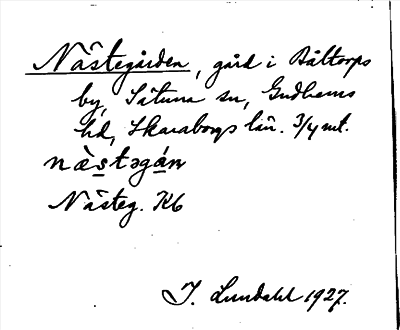 Nästegården, gård i Bältorps
by, Sätuna sn, Gudhems
hd, Skaraborgs län. 3/4 mt.
næ̀stəgán
Nästeg. Kb
I. Lundahl 1927.